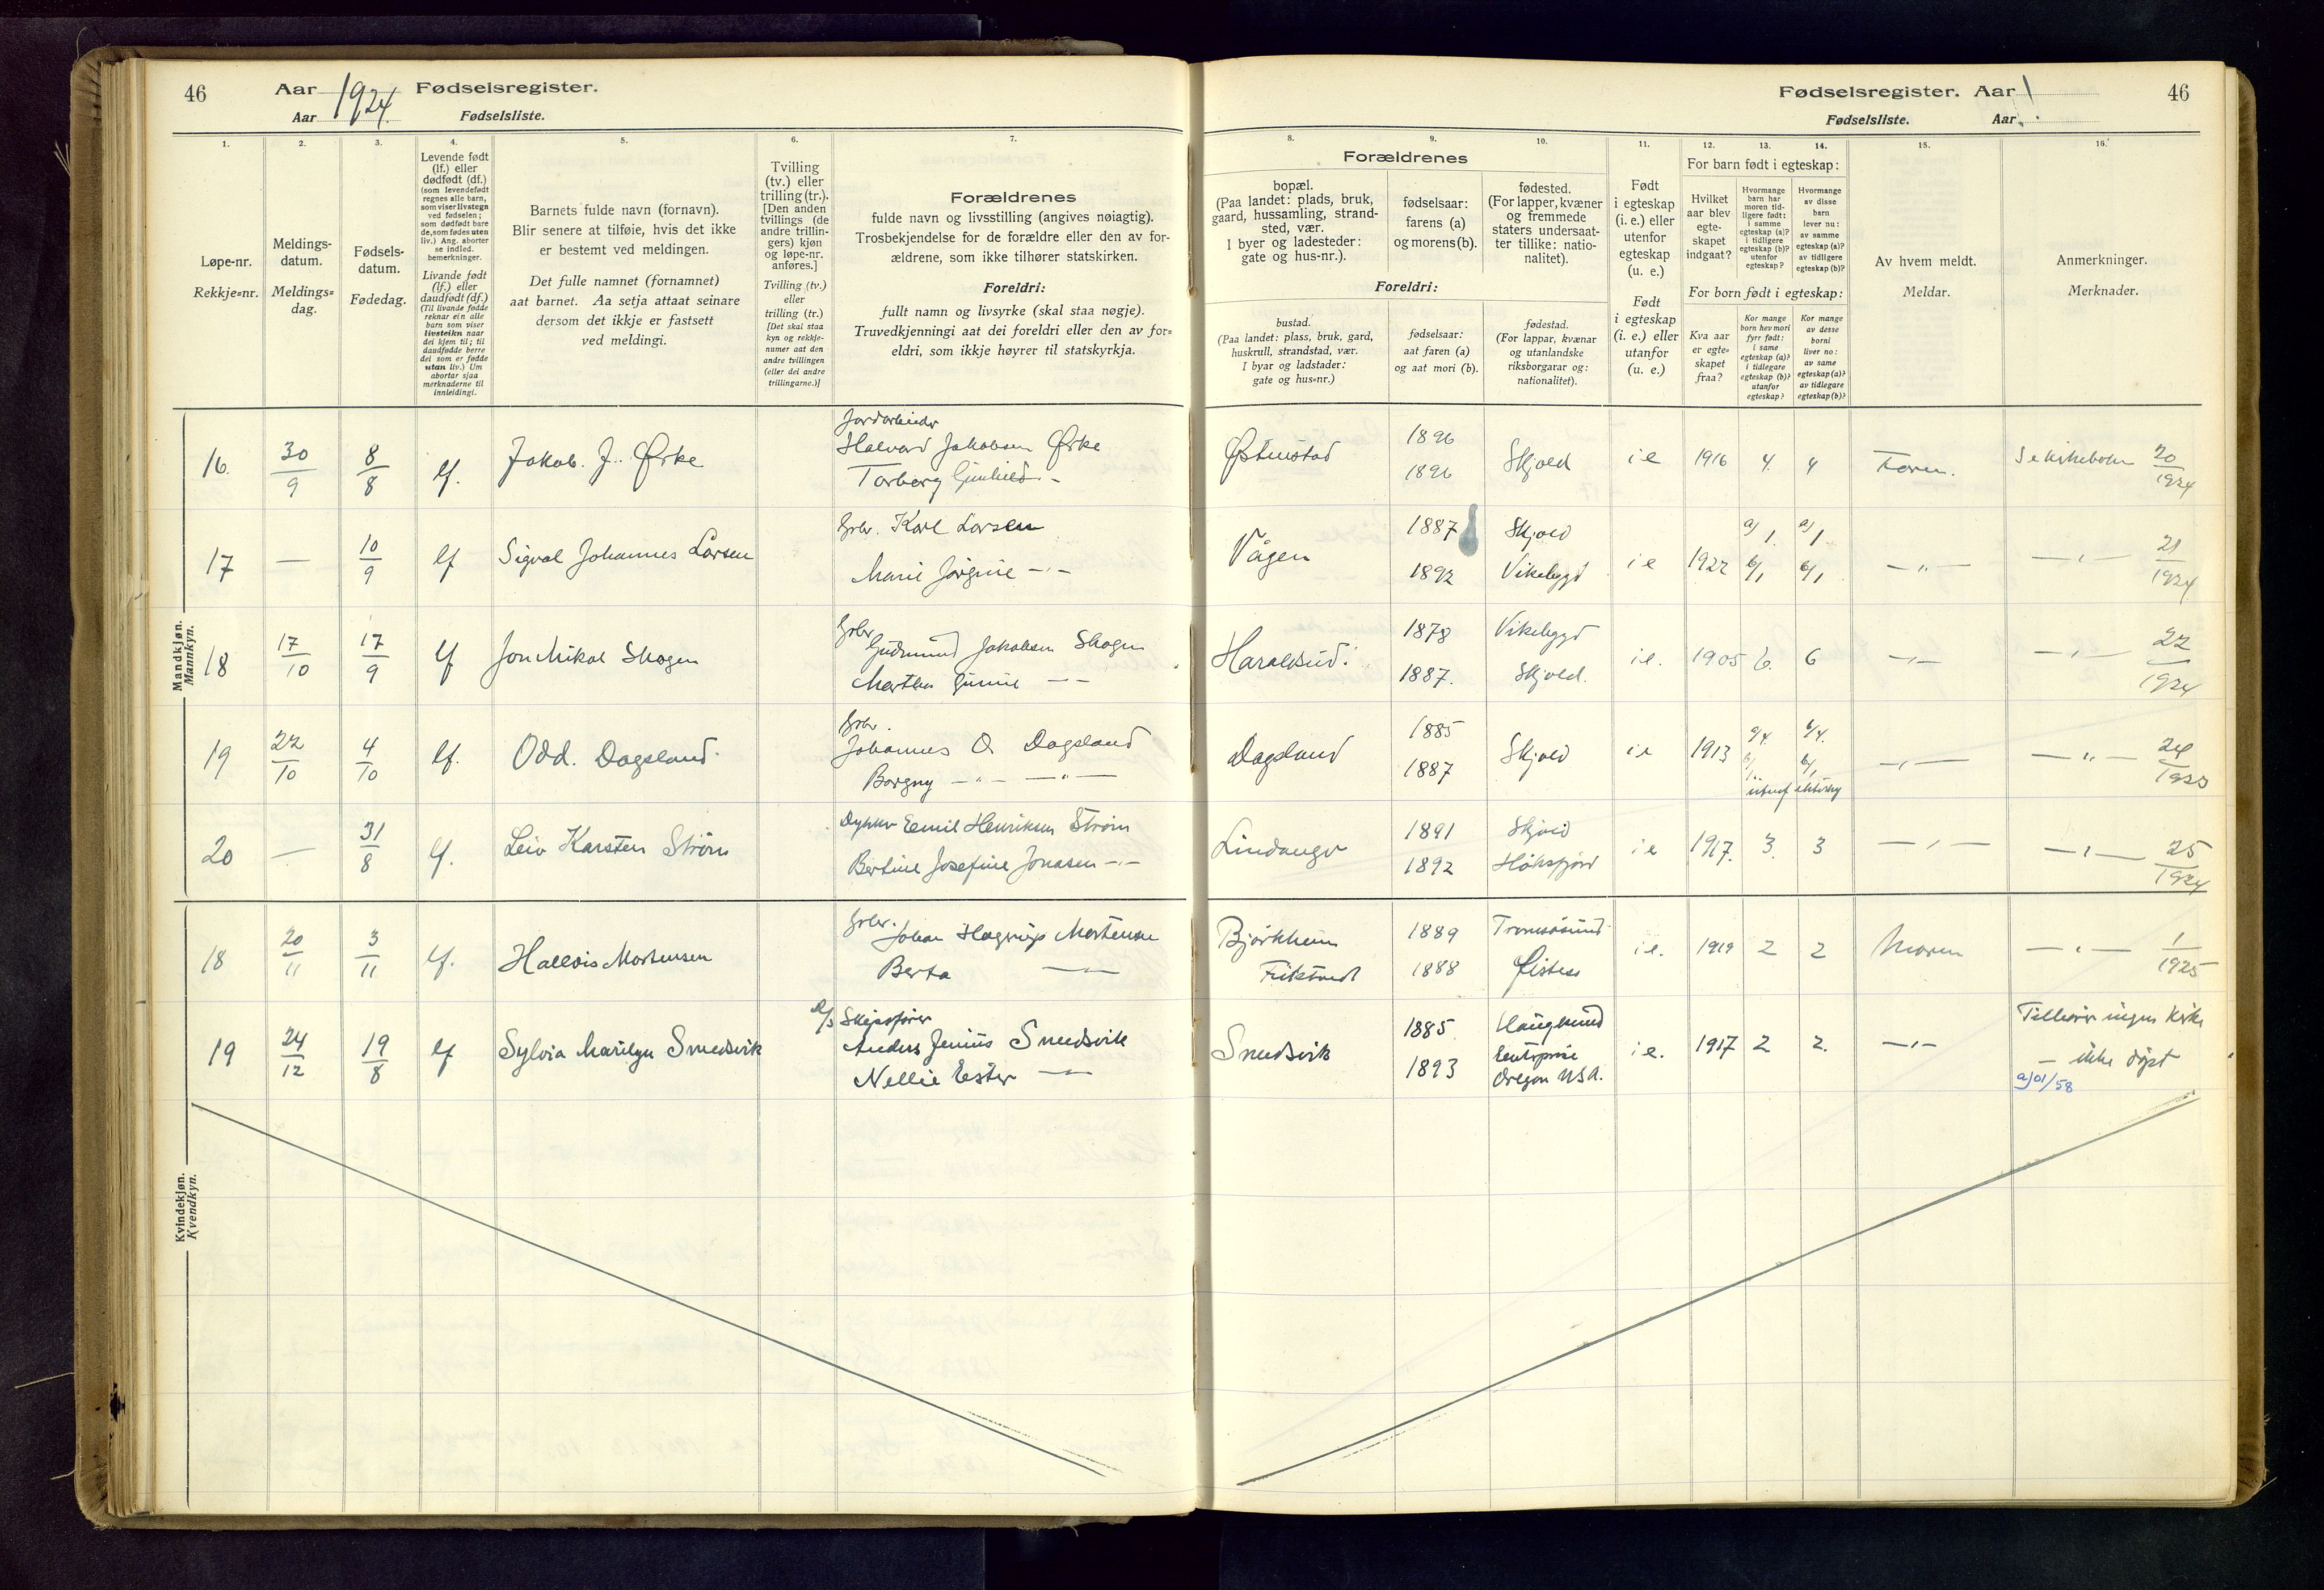 46
Aar 1924. Fødselsregister.
Aar Fødselsliste.
Fødselsregister. Aar
46
Fødselsliste. Aar
1. 2. 3. 4. 5. 6. 7.
8. 9. 10. 11. 12. 13. 14. 15. 16.
Løpe-nr.
Rekkje=nr.
Meldings-
datum.
Meldings=
dag.
Fødsels-
datum.
Fødedag.
Levende født
(lf.) eller
dødfødt (df.)
(som levendefødt
regnes alle barn,
som viser livstegn
ved fødselen;
som dødfødt bare
de, som fødes uten
liv.) Ang. aborter
se indled.
bemerkninger.
Livande født
(lf.) eller
daudfødt (df.)
(Til livande fødde
reknar ein alle
barn som viser
livsteikn naar
dei kjem til; til
daudfødde berre
dei som er fødde
utan liv.) Um
abortar sjaa
merknaderne til
innleidingi.
Barnets fulde navn (fornavn).
Blir senere at tilføie, hvis det ikke
er bestemt ved meldingen.
Det fulle namnet (fornamnet)
aat barnet. Aa setja attaat seinare
dersom det ikkje er fastsett
ved meldingi.
Tvilling
(tv.) eller
trilling (tr.).
[Den anden
tvillings (de
andre trillin-
gers) kjøn
og løpe-nr.
anføres.]
Tvilling (tv.)
eller
trilling (tr.)
[Det skal staa
kyn og rekkje-
numer aat den
andre tvillingen
(eller dei andre
trillingarne.)]
Forældrenes
fulde navn og livsstilling (angives nøiagtig).
Trosbekjendelse for de forældre eller den av for-
ældrene, som ikke tilhører statskirken.
Foreldri:
fullt namn og livsyrke (skal staa nøgje).
Truvedkjenningi aat dei foreldri eller den av for=
eldri, som ikkje høyrer til statskyrkja.
Forældrenes
bopæl.
(Paa landet: plads, bruk,
gaard, hussamling, strand-
sted, vær.
I byer og ladesteder:
gate og hus-nr.).
fødselsaar:
farens (a)
og morens (b).
fødested.
(For lapper, kvæner
og fremmede
staters undersaat-
ter tillike: natio-
nalitet).
Foreldri:
bustad.
(Paa landet: plass, bruk, gard,
huskrull, strandstad, vær.
I byar og ladstader:
gate og hus=nr.)
fødselsaar:
aat faren (a)
og aat mori (b).
fødestad.
(For lappar, kvænar
og utanlandske
riksborgarar og:
nationalitet).
Født
i egteskap
(i. e.) eller
utenfor
egteskap
(u. e.)
Født
i egteskap
(i. e.) eller
utanfor
(u. e.)
For barn født i egteskap:
Hvilket
aar blev
egte-
skapet
indgaat?
Hvormange
barn har
moren tid-
ligere født:
i samme
egteskap (a)?
i tidligere
egteskap (b)?
utenfor
egteskap?
Hvormange
av disse
barn
lever nu:
av samme
egteskap (a)?
av tidligere
egteskap (b)?
For born født i egteskap:
Kva aar
er egte=
skapet
fraa?
Kor mange
born hev mori
fyrr født:
i same
egteskap (a)?
i tidlegare
egteskap (b)?
utanfor
egteskap?
Kor mange
av desse
borni
liver no:
av same
egteskap (a)?
av tidlegare
egteskap (b)?
Av hvem meldt.
Meldar.
Anmerkninger.
Merknader.
Mandkjøn.
Mannkyn.
16. 30/9 8/8 lf. Jakob. J. Ørke Jordarbeider Halvard Jakobsen Ørke Østenstad 1896 Skjold i e 1916 4. 4 Faren. 20/1924
Torborg Gunhild 1896
17 — 10/9 lf Sigval Johannes Larsen Grbr. Karl Larsen Vågen 1887 Skjold i e 1922 a/1. a/1 —„— —„— 21/1924
Marie Jørgine —„— 1892 Vikebygd b/1 b/1
18 17/10 17/9 lf Jon Mikal Skogen Grbr. Gudmund Jakobsen Skogen 1878 Vikebygd i e. 1905 6. 6 —„— —„— 22/1924
Martha Gurine —„— 1887. Skjold.
19 22/10 4/10 lf. Odd. Dagsland. Grbr. Johannes O. Dagsland Dagsland 1885 Skjold i e 1913 a/4. b/4. —„— —„— 24
Borgny —„— —„— 1887 b/1 b/1
20 — 31/8 lf. Leiv Karsten Strøm Dykker Emil Henriksen Strøm Lindanger 1891 Skjold i e 1917. 3. 3 —„— —„— 25/1924
Bertine Josefine Jonasen —„— 1892
Kvindekjøn.
Kvendkyn.
18 20/11 3/11 lf. Haldis Mortensen Grbr. Johan Hagerup Mortensen Bjørkheim 1889 Tromsøsund i e. 1919 2 2 Moren —„— 1/1925
Berta —„— 1888
19 24/12 19/8 lf Sylvia Marilyn Smedsvik Skipsfører Anders Jenius Smedsvik Smedsvik 1885. Haugesund i e. 1917 2 2. —„— Tilhører ingen kirke
Nellie Ester —„— 1893 Enterprise Oregon U.S.A. — ikke døpt
a)01/58